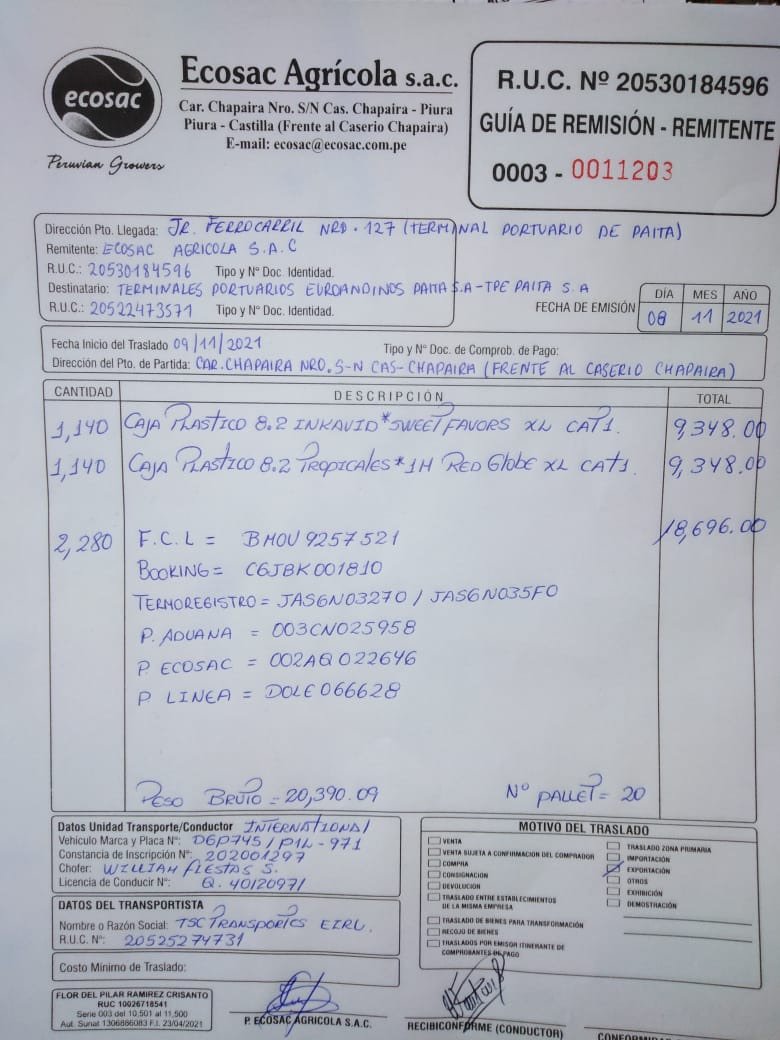 ecosac
Peruvian Growers
Ecosac Agrícola s.a.c.
Car. Chapaira Nro. S/N Cas. Chapaira - Piura
Piura - Castilla (Frente al Caserio Chapaira)
E-mail: ecosac@ecosac.com.pe
R.U.C. Nº 20530184596
GUÍA DE REMISIÓN - REMITENTE
0003 - 0011203
Dirección Pto. Llegada: JR. FERROCARRIL NRO. 127 (TERMINAL PORTUARIO DE PAITA)
Remitente: ECOSAC AGRICOLA S.A.C
R.U.C.: 20530184596 Tipo y Nº Doc. Identidad.
Destinatario: TERMINALES PORTUARIOS EUROANDINOS PAITA S.A - TPE PAITA S.A
R.U.C.: 20522473571 Tipo y Nº Doc. Identidad.
FECHA DE EMISIÓN DÍA MES AÑO
08 11 2021
Fecha Inicio del Traslado 09/11/2021 Tipo y No Doc. de Comprob. de Pago:
Dirección del Pto. de Partida: CAR. CHAPAIRA NRO. S-N CAS-CHAPAIRA (FRENTE AL CASERIO CHAPAIRA)
CANTIDAD DESCRIPCIÓN TOTAL
1,140 CAJA PLASTICO 8.2 INKAVID*SWEET FAVORS XL CAT1. 9,348.00
1,140 CAJA PLASTICO 8.2 TROPICALES*1H RED GLOBE XL CAT1. 9,348.00
2,280 F.C.L = BMOU 9257521 18,696.00
BOOKING = C6JBK001810
TERMOREGISTRO = JAS6N03270 / JAS6N035F0
P. ADUANA = 003CN025958
P. ECOSAC = 002AQ022646
P. LINEA = DOLE066628
PESO BRUTO = 20,390.09 Nº PALLET = 20
Datos Unidad Transporte/Conductor INTERNATIONAL
Vehiculo Marca y Placa Nº: D6P745 / P1L-971
Constancia de Inscripción Nº: 202001297
Chofer: WILLIAM FIESTAS S.
Licencia de Conducir Nº: Q. 40120971
DATOS DEL TRANSPORTISTA
Nombre o Razón Social: TSC TRANSPORTES EIRL.
R.U.C. Nº: 20525274731
Costo Mínimo de Traslado:
MOTIVO DEL TRASLADO
VENTA
VENTA SUJETA A CONFIRMACION DEL COMPRADOR
COMPRA
CONSIGNACION
DEVOLUCION
TRASLADO ENTRE ESTABLECIMIENTOS
DE LA MISMA EMPRESA
TRASLADO DE BIENES PARA TRANSFORMACIÓN
RECOJO DE BIENES
TRASLADOS POR EMISOR ITINERANTE DE
COMPROBANTES DE PAGO
TRASLADO ZONA PRIMARIA
IMPORTACIÓN
EXPORTACIÓN
OTROS
EXHIBICIÓN
DEMOSTRACIÓN
FLOR DEL PILAR RAMIREZ CRISANTO
RUC 10026718541
Serie 003 del 10,501 al 11,500
Aut. Sunat 1306886083 F.I. 23/04/2021
P. ECOSAC AGRICOLA S.A.C.
RECIBI CONFORME (CONDUCTOR)